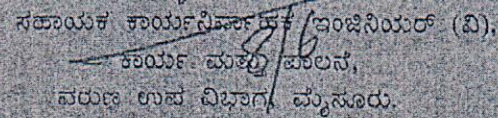 ಸಹಾಯಕ ಕಾರ್ಯನಿರ್ವಾಹಕ ಇಂಜಿನಿಯರ್ (ವಿ),
ಕಾರ್ಯ ಮತ್ತು ಪಾಲನೆ,
ವರುಣ ಉಪ ವಿಭಾಗ, ಮೈಸೂರು.